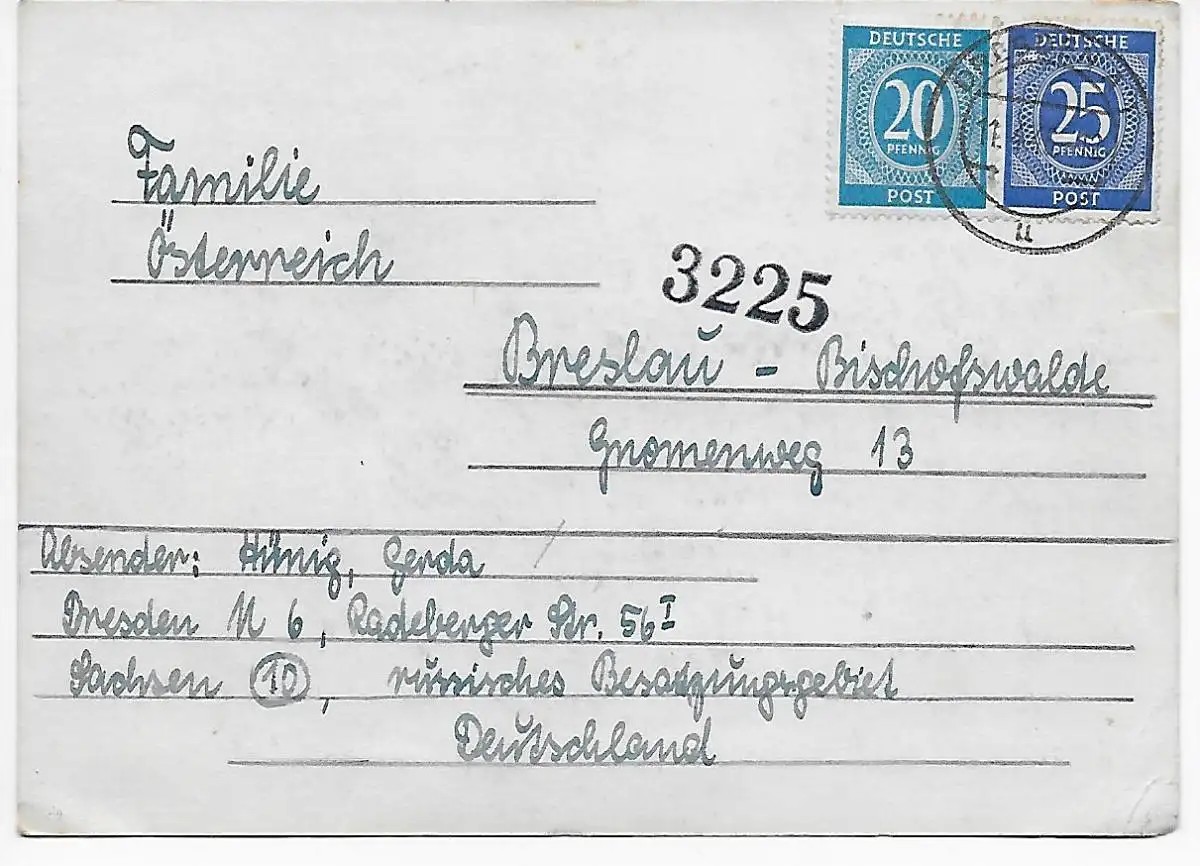 DEUTSCHE
20
PFENNIG
POST
DEUTSCHE
25
PFENNIG
POST
u
Familie
Österreich
3225
Breslau - Bischofswalde
Gnomenweg 13
Absender: Hünig, Gerda
Dresden N 6, Radeberger Str. 56 I
Sachsen (10), russisches Besatzungsgebiet
Deutschland